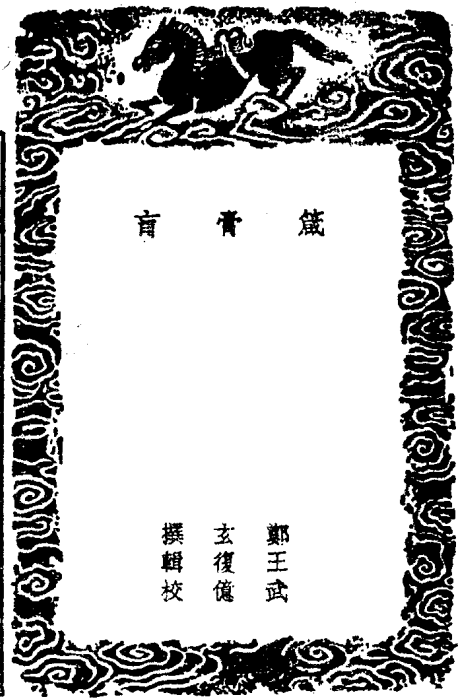 箴膏肓
鄭玄撰
王復輯
武億校